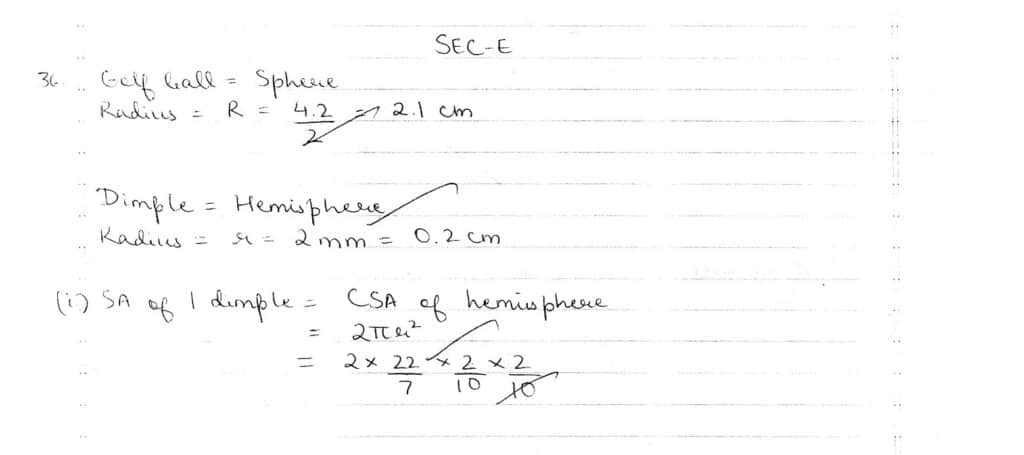 SEC-E
36 Golf ball = Sphere
Radius = R = 4.2/2 => 2.1 cm
Dimple = Hemisphere
Radius = r = 2 mm = 0.2 cm
(i) SA of 1 dimple = CSA of hemisphere
= 2πr²
= 2 × 22/7 × 2/10 × 2/10